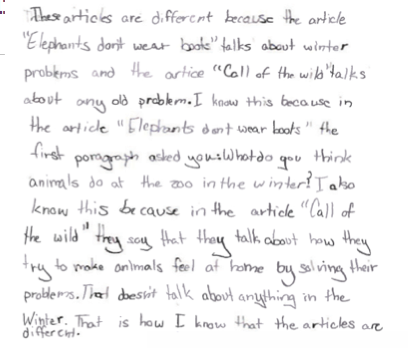 These articles are different because the article
"Elephants dont wear boots" talks about winter
problems and the artice "Call of the wild" talks
about any old problem. I know this because in
the article "Elephants dont wear boots" the
first paragraph asked you: What do you think
animals do at the zoo in the winter? I also
know this because in the article "Call of
the wild" they say that they talk about how they
try to make animals feel at home by solving their
problems. That doesn't talk about anything in the
Winter. That is how I know that the articles are
different.